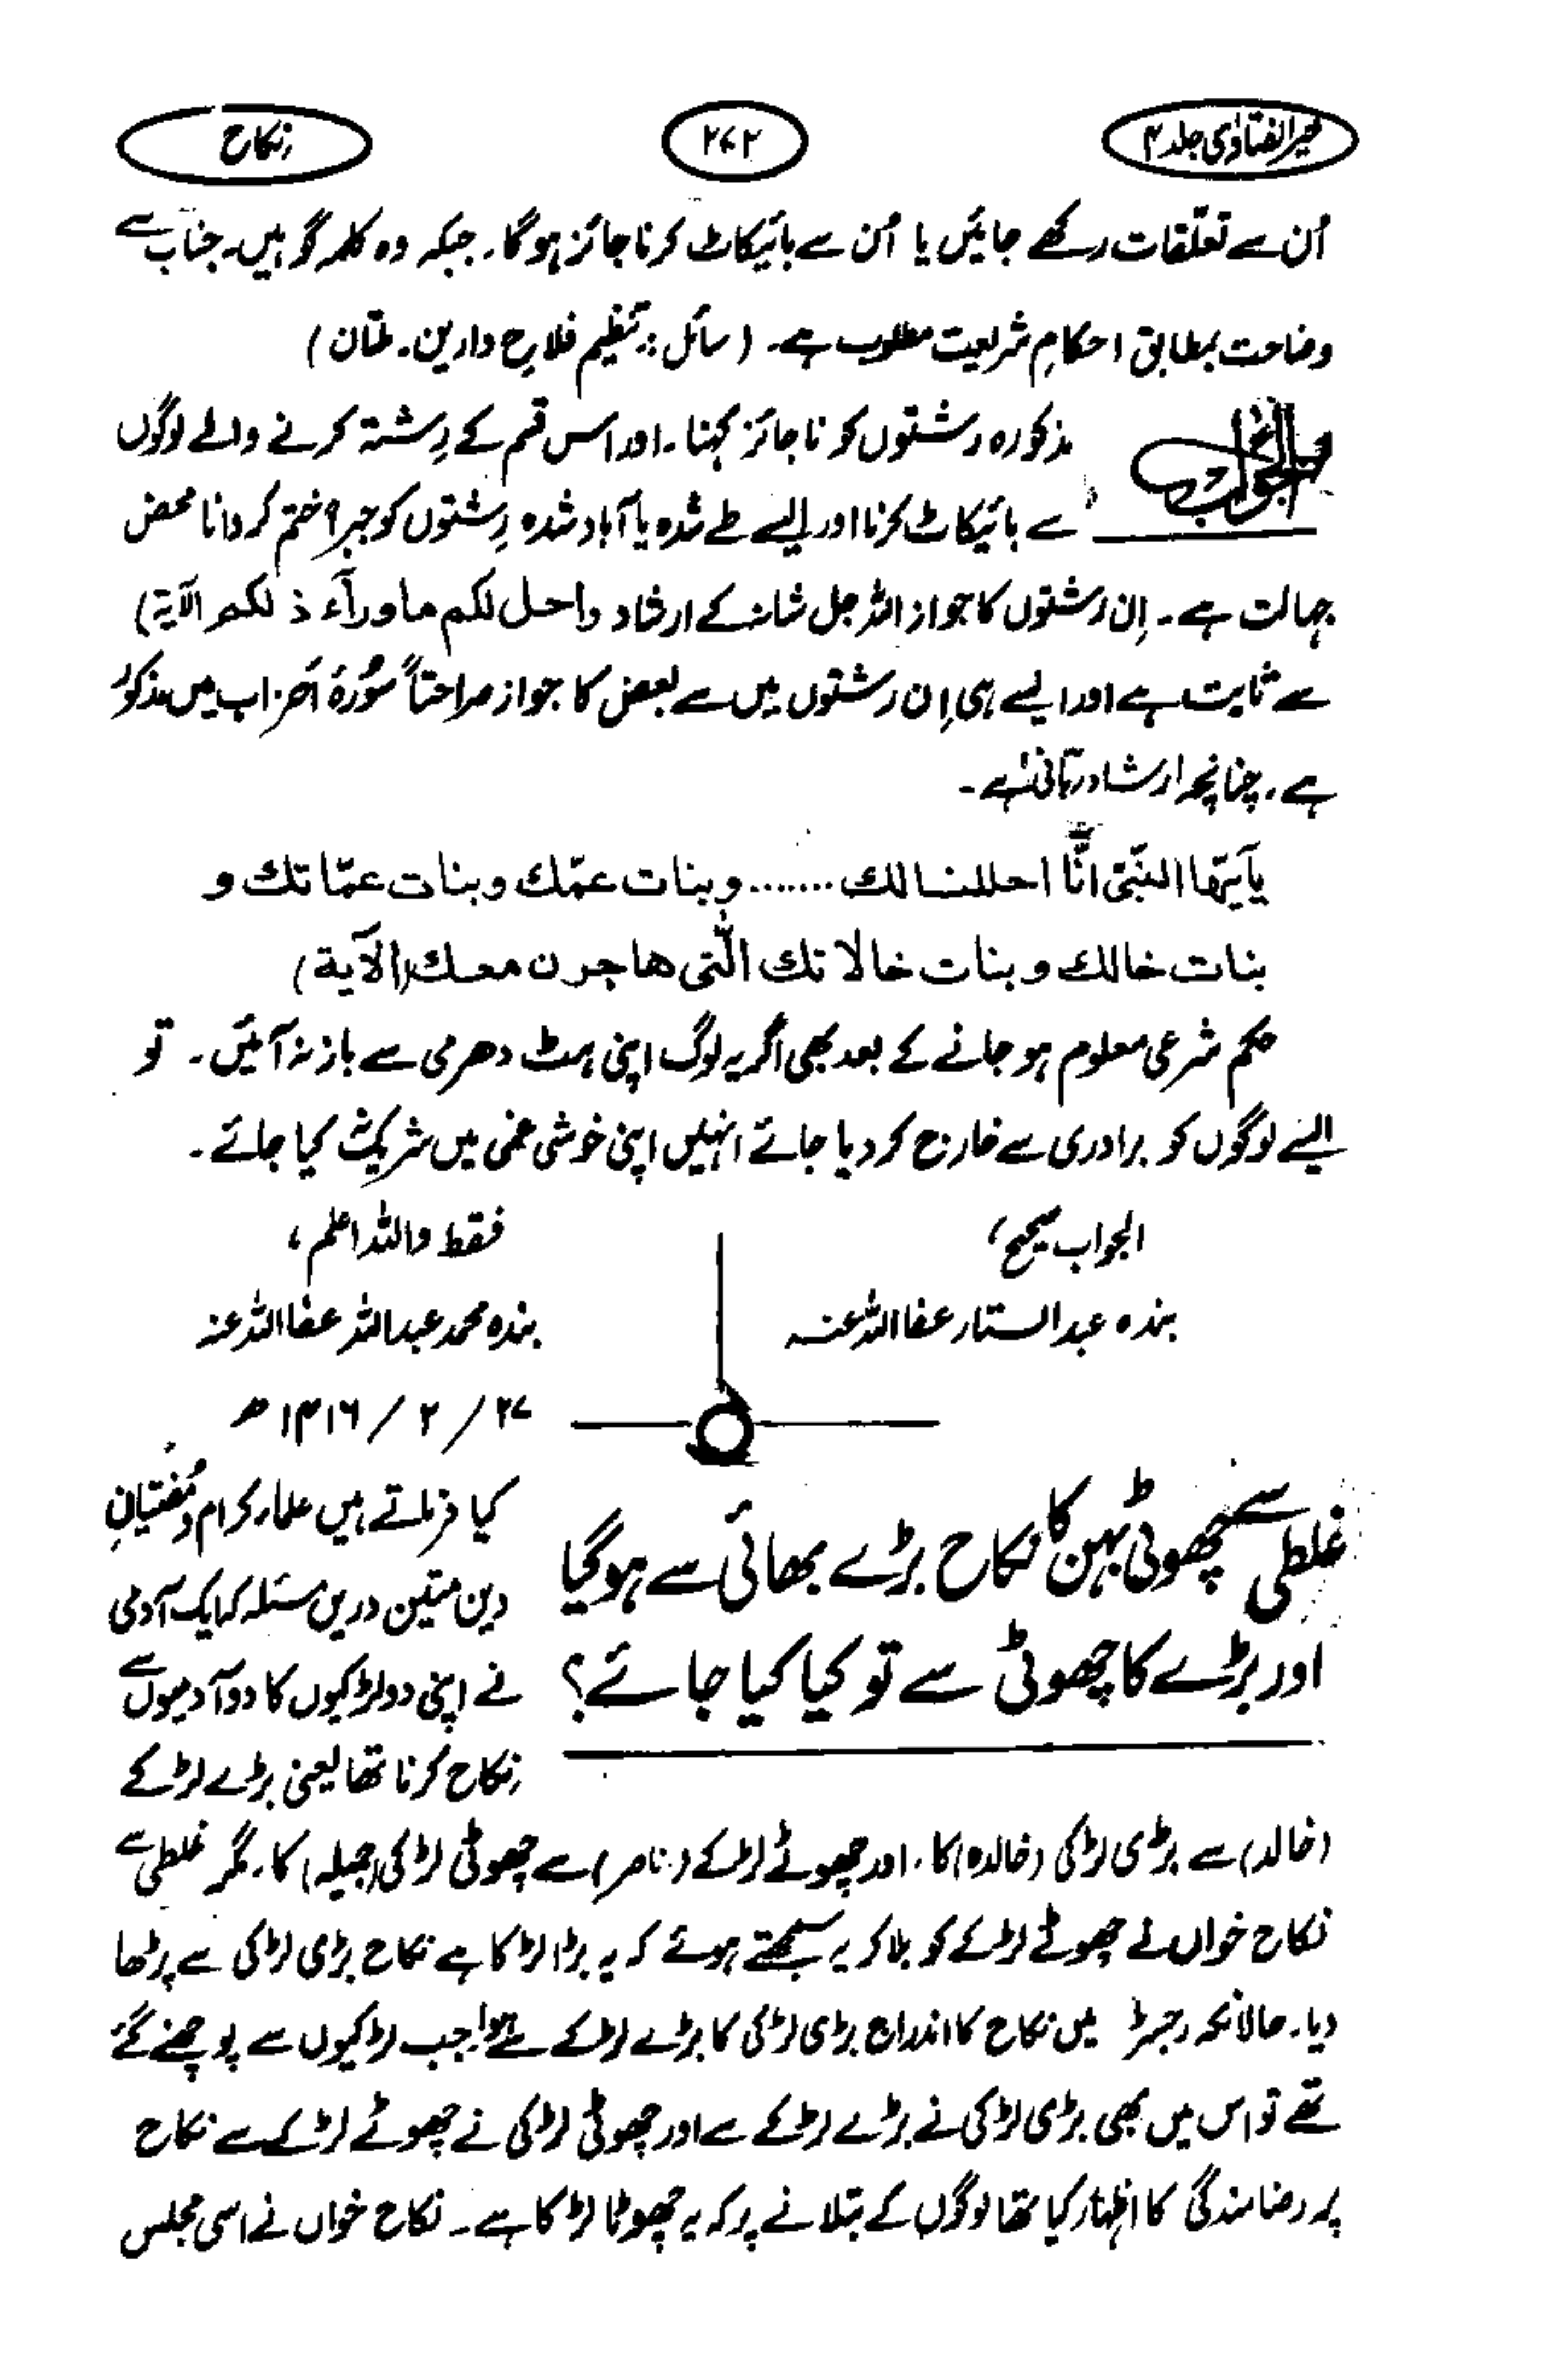 خیر الفتاوٰی جلد ۴
۲۷۲
نکاح
اُن سے تعلّقات رکھے جائیں یا اُن سے بائیکاٹ کرنا جائز ہوگا۔ جبکہ وہ کلمہ گو ہیں۔ جناب سے
وضاحت بمطابق احکامِ شریعت مطلوب ہے۔ (سائل:۔ تنظیم فلاح دارین۔ ملتان)
الجواب
مذکورہ رشتوں کو ناجائز کہنا۔ اور اس قسم کے رِشتہ کرنے والے لوگوں
سے بائیکاٹ کرنا اور ایسے طے شدہ یا آباد شدہ رِشتوں کو جبراً ختم کروانا محض
جہالت ہے۔ اِن رشتوں کا جواز اللہ جل شانہ کے ارشاد واحل لکم ماورآء ذلکم الآیة)
سے ثابت ہے اور ایسے ہی اِن رشتوں میں سے بعض کا جواز صراحتاً سُورۂ احزاب میں مذکور
ہے۔ چنانچہ ارشاد ربّانی ہے۔
یٰآیّہا النّبیّ انّا احللنا لک ....... و بنات عمّک وبنات عمّاتک و
بنات خالک و بنات خالاتک الّٰتی ھاجرن معک (الآیة)
حکم شرعی معلوم ہو جانے کے بعد بھی اگر یہ لوگ اپنی ہٹ دھرمی سے باز نہ آئیں۔ تو
ایسے لوگوں کو برادری سے خارج کر دیا جائے انہیں اپنی خوشی غمی میں شریک نہ کیا جائے۔
الجواب صحیح،
بندہ عبدالستار عفا اللہ عنہ
فقط واللہ اعلم،
بندہ محمد عبداللہ عفا اللہ عنہ
۲۷ / ۲ / ۱۴۱۶ ھ
غلطی سے چھوٹی بہن کا نکاح بڑے بھائی سے ہوگیا
اور بڑے کا چھوٹی سے تو کیا کیا جائے؟
کیا فرماتے ہیں علماء کرام و مُفتیانِ
دین متین دریں مسئلہ کہ ایک آدمی
نے اپنی دو لڑکیوں کا دو آدمیوں سے
نکاح کرنا تھا یعنی بڑے لڑکے
(خالد) سے بڑی لڑکی (خالدہ) کا۔ اور چھوٹے لڑکے (ناصر) سے چھوٹی لڑکی (جمیلہ) کا۔ مگر غلطی سے
نکاح خواں نے چھوٹے لڑکے کو بلا کر یہ سمجھتے ہوئے کہ یہ بڑا لڑکا ہے نکاح بڑی لڑکی سے پڑھا
دیا۔ حالانکہ رجسٹر میں نکاح کا اندراج بڑی لڑکی کا بڑے لڑکے سے ہوا جب لڑکیوں سے پوچھنے گئے
تھے تو اس میں بھی بڑی لڑکی نے بڑے لڑکے سے اور چھوٹی لڑکی نے چھوٹے لڑکے سے نکاح
پر رضامندگی کا اظہار کیا تھا لوگوں کے بتلانے پر کہ یہ چھوٹا لڑکا ہے۔ نکاح خواں نے اسی مجلس